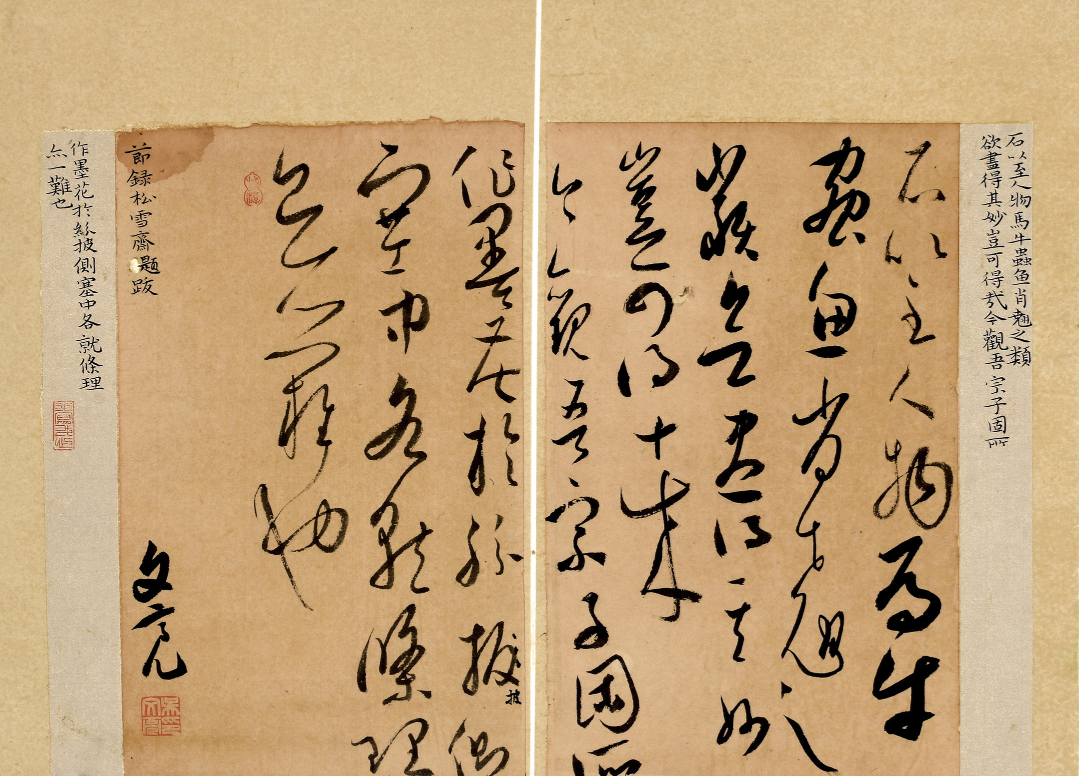 石以至人物馬牛蟲鱼肖翹之類
欲盡得其妙豈可得哉今觀吾宗子固所
石以至人物馬牛
蟲魚肖翹之
類欲盡得其妙
豈可得哉
今觀吾宗子固所
作墨花於紛披側
披
塞中各就條理
亦一難也
節録松雪齋題跋
文亮
作墨花於紛披側塞中各就條理
亦一難也